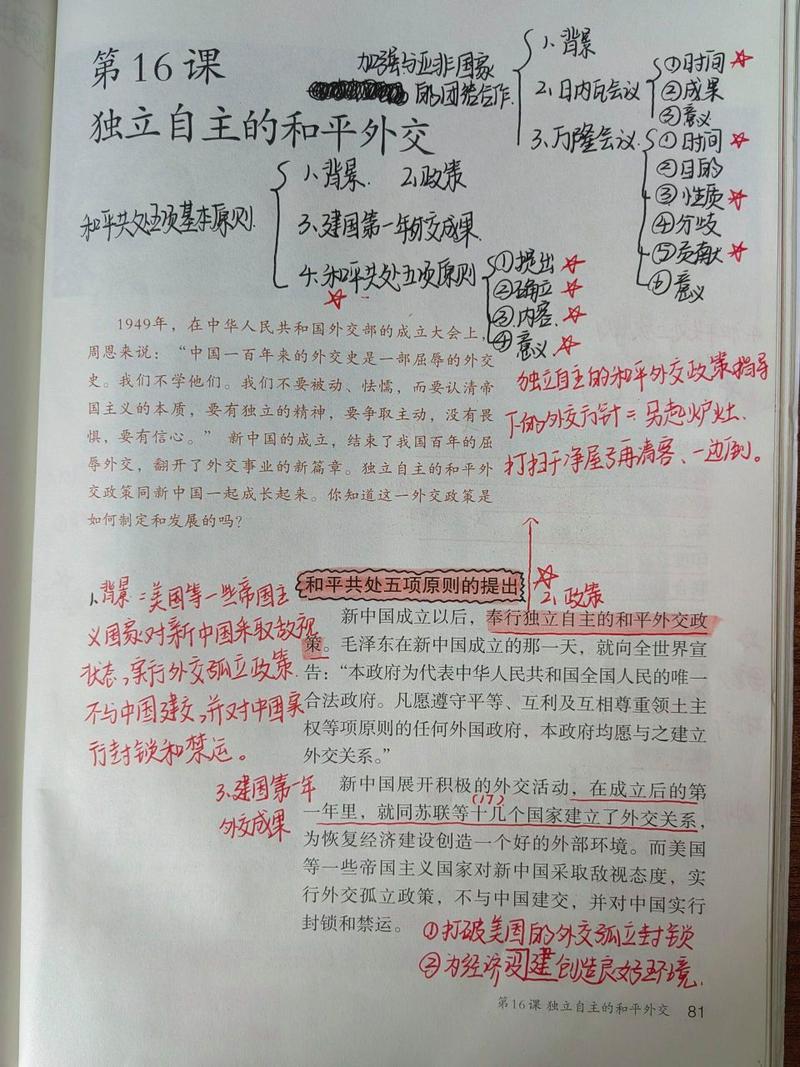 第16课
独立自主的和平外交
加强与亚非国家
的团结合作
1、背景
2、日内瓦会议
①时间
②成果
③意义
3、万隆会议
①时间
②目的
③性质
④分歧
⑤贡献
⑥意义
和平共处五项基本原则
1、背景 2、政策
3、建国第一年外交成果
4、和平共处五项原则
①提出
②确立
③内容
④意义
1949年，在中华人民共和国外交部的成立大会上，
周恩来说：“中国一百年来的外交史是一部屈辱的外交
史。我们不学他们。我们不要被动、怯懦，而要认清帝
国主义的本质，要有独立的精神，要争取主动，没有畏
惧，要有信心。”新中国的成立，结束了我国百年的屈
辱外交，翻开了外交事业的新篇章。独立自主的和平外
交政策同新中国一起成长起来。你知道这一外交政策是
如何制定和发展的吗？
独立自主的和平外交政策指导
下的外交方针：另起炉灶、
打扫干净屋子再请客、一边倒。
和平共处五项原则的提出
2、政策
1、背景：美国等一些帝国主
义国家对新中国采取敌视
状态，实行外交孤立政策
不与中国建交，并对中国实
行封锁和禁运。
新中国成立以后，奉行独立自主的和平外交政
策。毛泽东在新中国成立的那一天，就向全世界宣
告：“本政府为代表中华人民共和国全国人民的唯一
合法政府。凡愿遵守平等、互利及互相尊重领土主
权等项原则的任何外国政府，本政府均愿与之建立
外交关系。”
3、建国第一年
外交成果
新中国展开积极的外交活动，在成立后的第
(17)
一年里，就同苏联等十几个国家建立了外交关系，
为恢复经济建设创造一个好的外部环境。而美国
等一些帝国主义国家对新中国采取敌视态度，实
行外交孤立政策，不与中国建交，并对中国实行
封锁和禁运。
①打破美国的外交孤立封锁
②为经济建设创造良好环境.
第16课 独立自主的和平外交 81